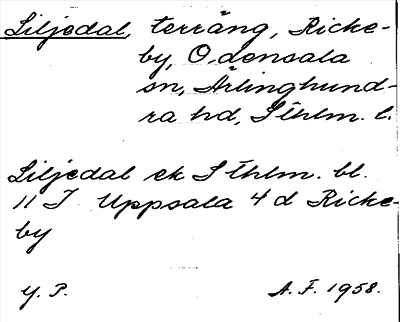 Siljedal, terräng, Ricke-
by, Odensala
sn, Ärlinghund-
ra hd, Sthlm. l.
Siljedal ek Sthlm. bl.
11 I Uppsala 4 d Ricke-
by
Y. P. A. F. 1958.